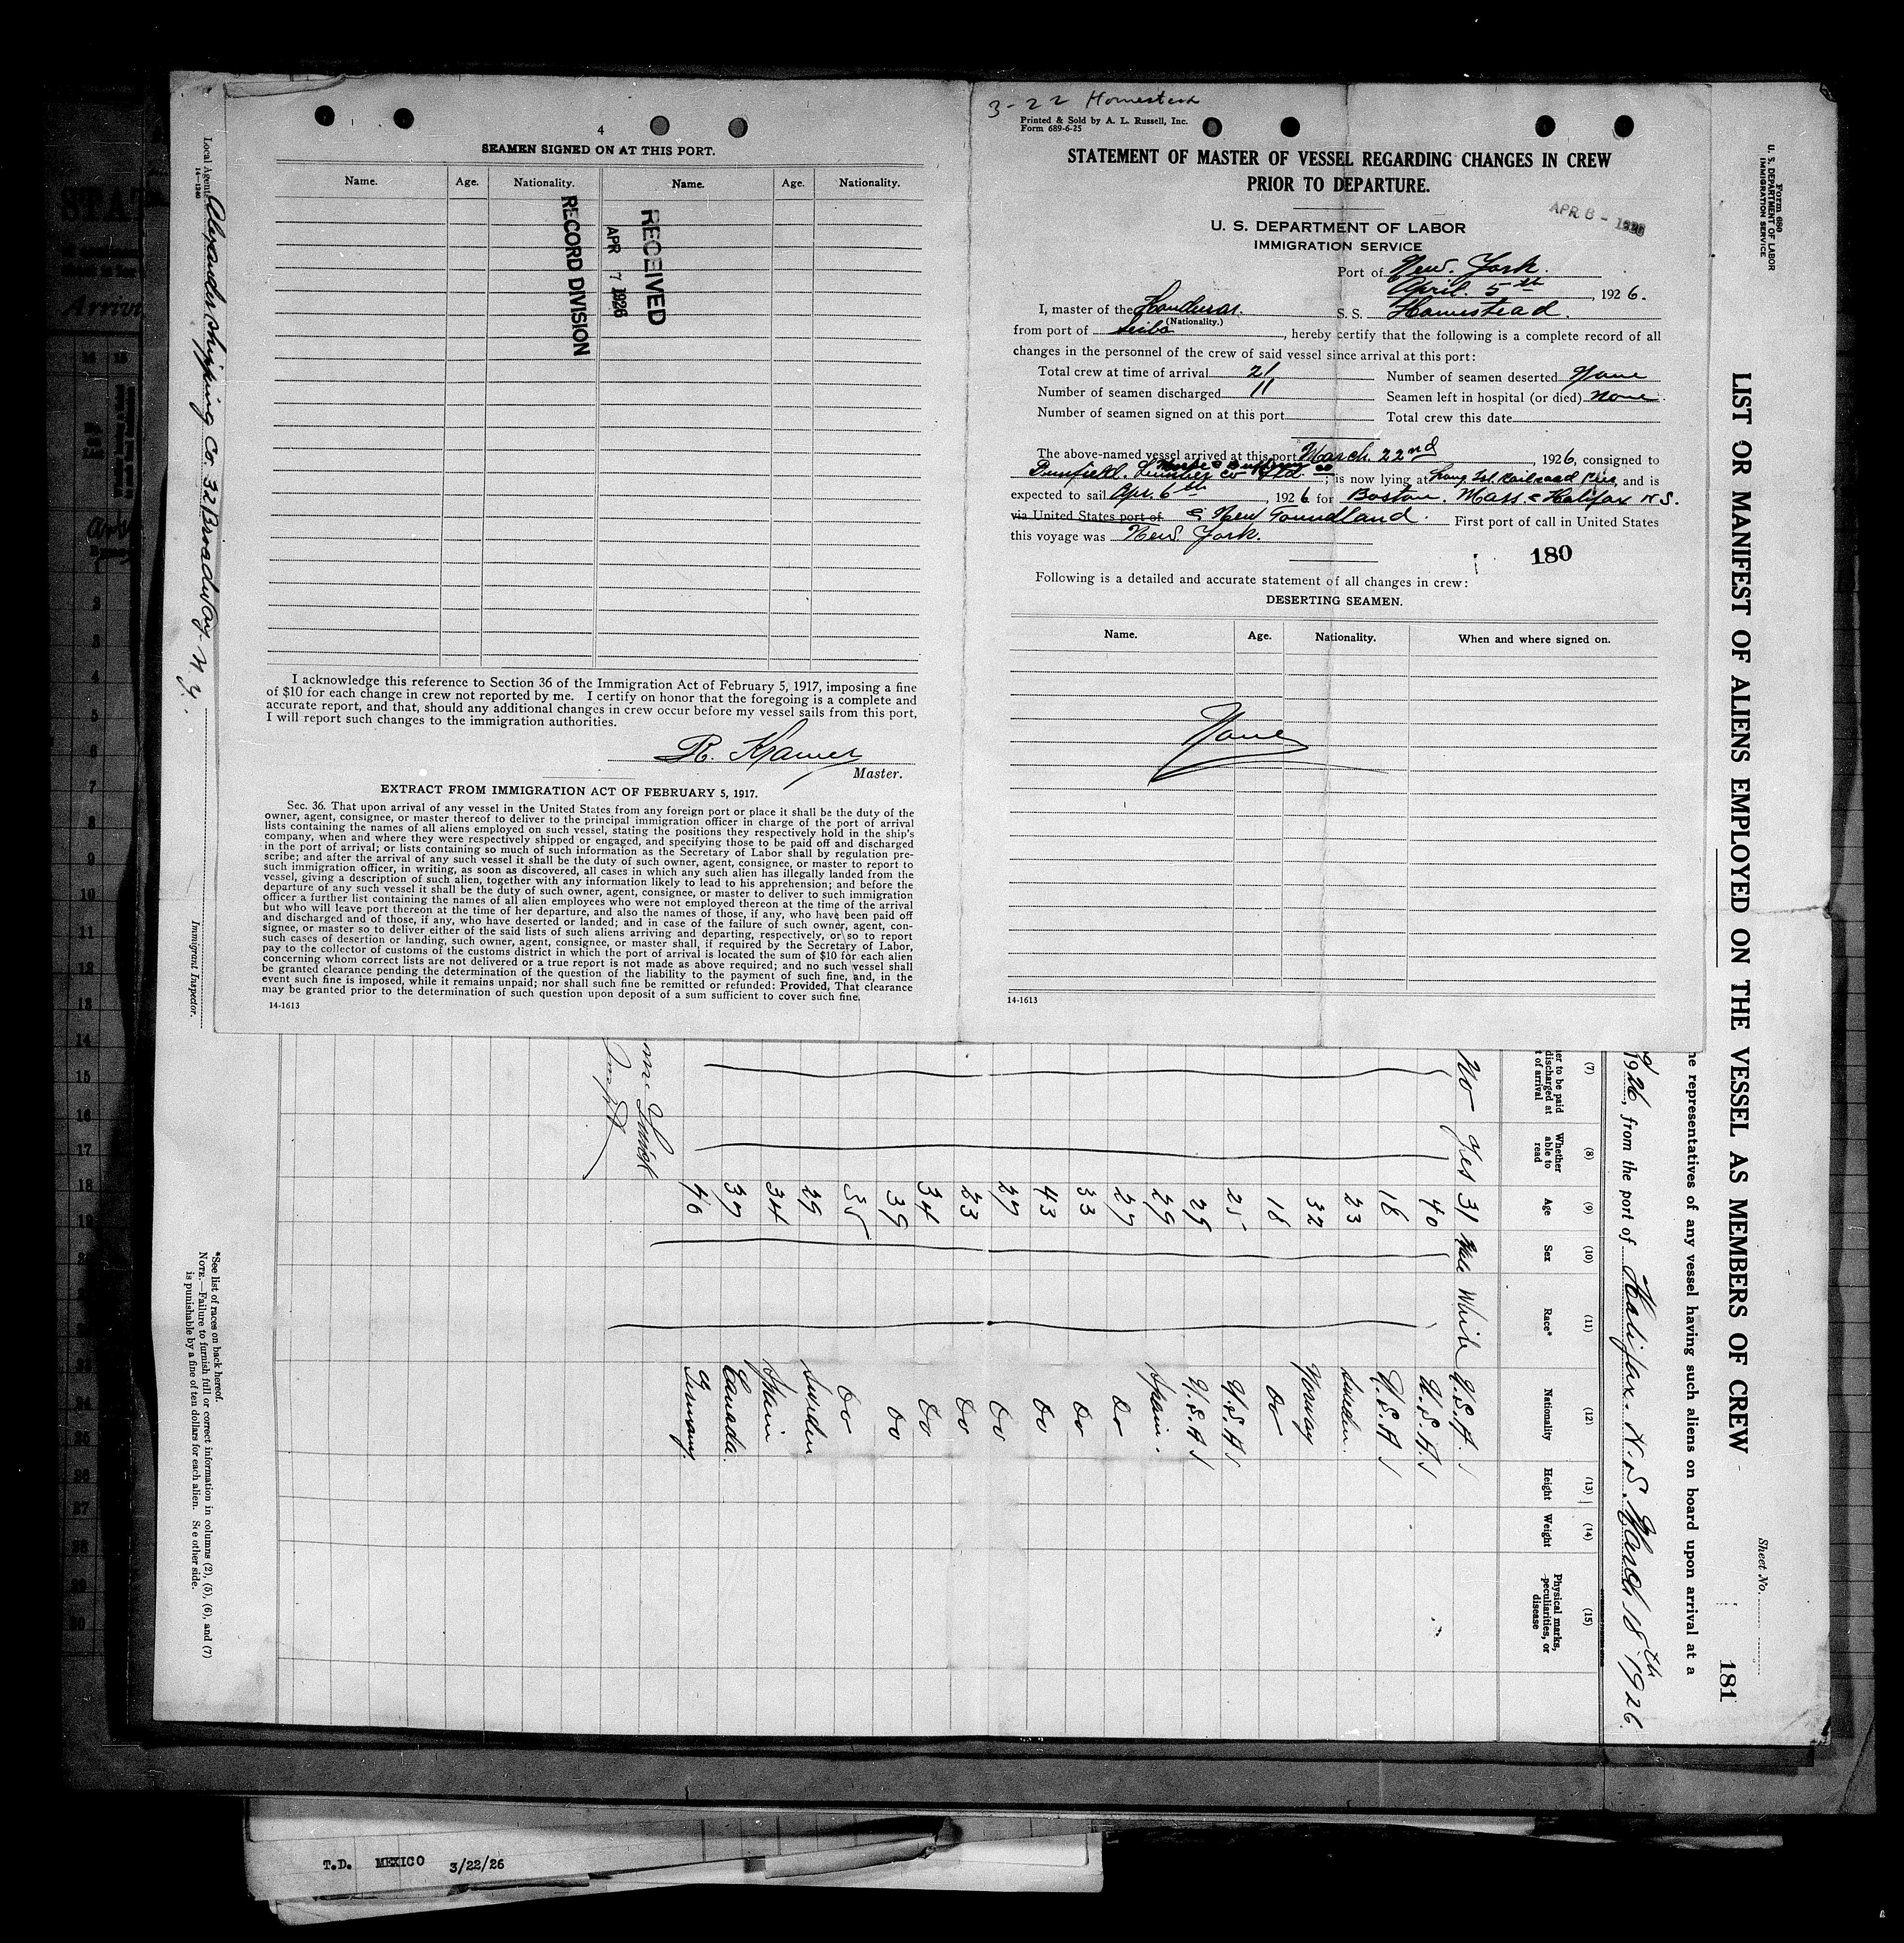 4
SEAMEN SIGNED ON AT THIS PORT.
Name. Age. Nationality. Name. Age. Nationality.
RECEIVED
APR 7 1926
RECORD DIVISION
I acknowledge this reference to Section 36 of the Immigration Act of February 5, 1917, imposing a fine
of $10 for each change in crew not reported by me. I certify on honor that the foregoing is a complete and
accurate report, and that, should any additional changes in crew occur before my vessel sails from this port,
I will report such changes to the immigration authorities.
R. Kramer
Master.
EXTRACT FROM IMMIGRATION ACT OF FEBRUARY 5, 1917.
Sec. 36. That upon arrival of any vessel in the United States from any foreign port or place it shall be the duty of the
owner, agent, consignee, or master thereof to deliver to the principal immigration officer in charge of the port of arrival
lists containing the names of all aliens employed on such vessel, stating the positions they respectively hold in the ship's
company, when and where they were respectively shipped or engaged, and specifying those to be paid off and discharged
in the port of arrival; or lists containing so much of such information as the Secretary of Labor shall by regulation pre-
scribe; and after the arrival of any such vessel it shall be the duty of such owner, agent, consignee, or master to report to
such immigration officer, in writing, as soon as discovered, all cases in which any such alien has illegally landed from the
vessel, giving a description of such alien, together with any information likely to lead to his apprehension; and before the
departure of any such vessel it shall be the duty of such owner, agent, consignee, or master to deliver to such immigration
officer a further list containing the names of all alien employees who were not employed thereon at the time of the arrival
but who will leave port thereon at the time of her departure, and also the names of those, if any, who have been paid off
and discharged and of those, if any, who have deserted or landed; and in case of the failure of such owner, agent, con-
signee, or master so to deliver either of the said lists of such aliens arriving and departing, respectively, or so to report
such cases of desertion or landing, such owner, agent, consignee, or master shall, if required by the Secretary of Labor,
pay to the collector of customs of the customs district in which the port of arrival is located the sum of $10 for each alien
concerning whom correct lists are not delivered or a true report is not made as above required; and no such vessel shall
be granted clearance pending the determination of the question of the liability to the payment of such fine, and, in the
event such fine is imposed, while it remains unpaid; nor shall such fine be remitted or refunded: Provided, That clearance
may be granted prior to the determination of such question upon deposit of a sum sufficient to cover such fine.
14-1613
3-22 Homestead
Printed & Sold by A. L. Russell, Inc.
Form 689-6-25
STATEMENT OF MASTER OF VESSEL REGARDING CHANGES IN CREW
PRIOR TO DEPARTURE.
APR 8 - 1926
U. S. DEPARTMENT OF LABOR
IMMIGRATION SERVICE
Port of New York.
April. 5th, 1926.
I, master of the Honduras. S. S. Homestead.
(Nationality.)
from port of Seibo, hereby certify that the following is a complete record of all
changes in the personnel of the crew of said vessel since arrival at this port:
Total crew at time of arrival 21 Number of seamen deserted None
Number of seamen discharged 11 Seamen left in hospital (or died) None.
Number of seamen signed on at this port Total crew this date
The above-named vessel arrived at this port March. 22nd, 1926, consigned to
Lumber Co Ltd; is now lying at Long Isl. Railroad Pier, and is
expected to sail Apr. 6th, 1926 for Boston, Mass. & Halifax N S.
via United States port of & New Foundland. First port of call in United States
this voyage was New York.
180
Following is a detailed and accurate statement of all changes in crew:
DESERTING SEAMEN.
Name. Age. Nationality. When and where signed on.
None
14-1613
Form 680
U. S. DEPARTMENT OF LABOR
IMMIGRATION SERVICE
LIST OR MANIFEST OF ALIENS EMPLOYED ON THE VESSEL AS MEMBERS OF CREW
Sheet No.
181
representatives of any vessel having such aliens on board upon arrival at a
1926, from the port of Halifax. N.S. March 18th 1926.
(7) (8) (9) (10) (11) (12) (13) (14) (15)
er to be paid
discharged at
t of arrival
Whether
able to
read
Age
Sex
Race*
Nationality
Height
Weight
Physical marks,
peculiarities, or
disease
No Yes 31 Male White U.S.A.
40 U.S.A.
18 U.S.A
23 Sweden.
32 Norway
18 Do
25 U.S.A
29 U.S.A
29 Spain.
27 Do
33 Do
43 Do
27 Do
23 Do
34 Do
39 Do
35 Do
29 Sweden
34 Spain
37 Canada.
40 Germany.
*See list of races on back hereof.
NOTE.—Failure to furnish full or correct information in columns (2), (5), (6), and (7)
is punishable by a fine of ten dollars for each alien. See other side.
Local Agents Alexander Shipping Co. 32 Broadway. N.Y.
14-1240
Immigrant Inspector.
STAT
Arrivi
14 15
1
2
3
4
5
6
7
8
9
10
11
12
13
14
15
16
17
18
19
T.D. MEXICO 3/22/26